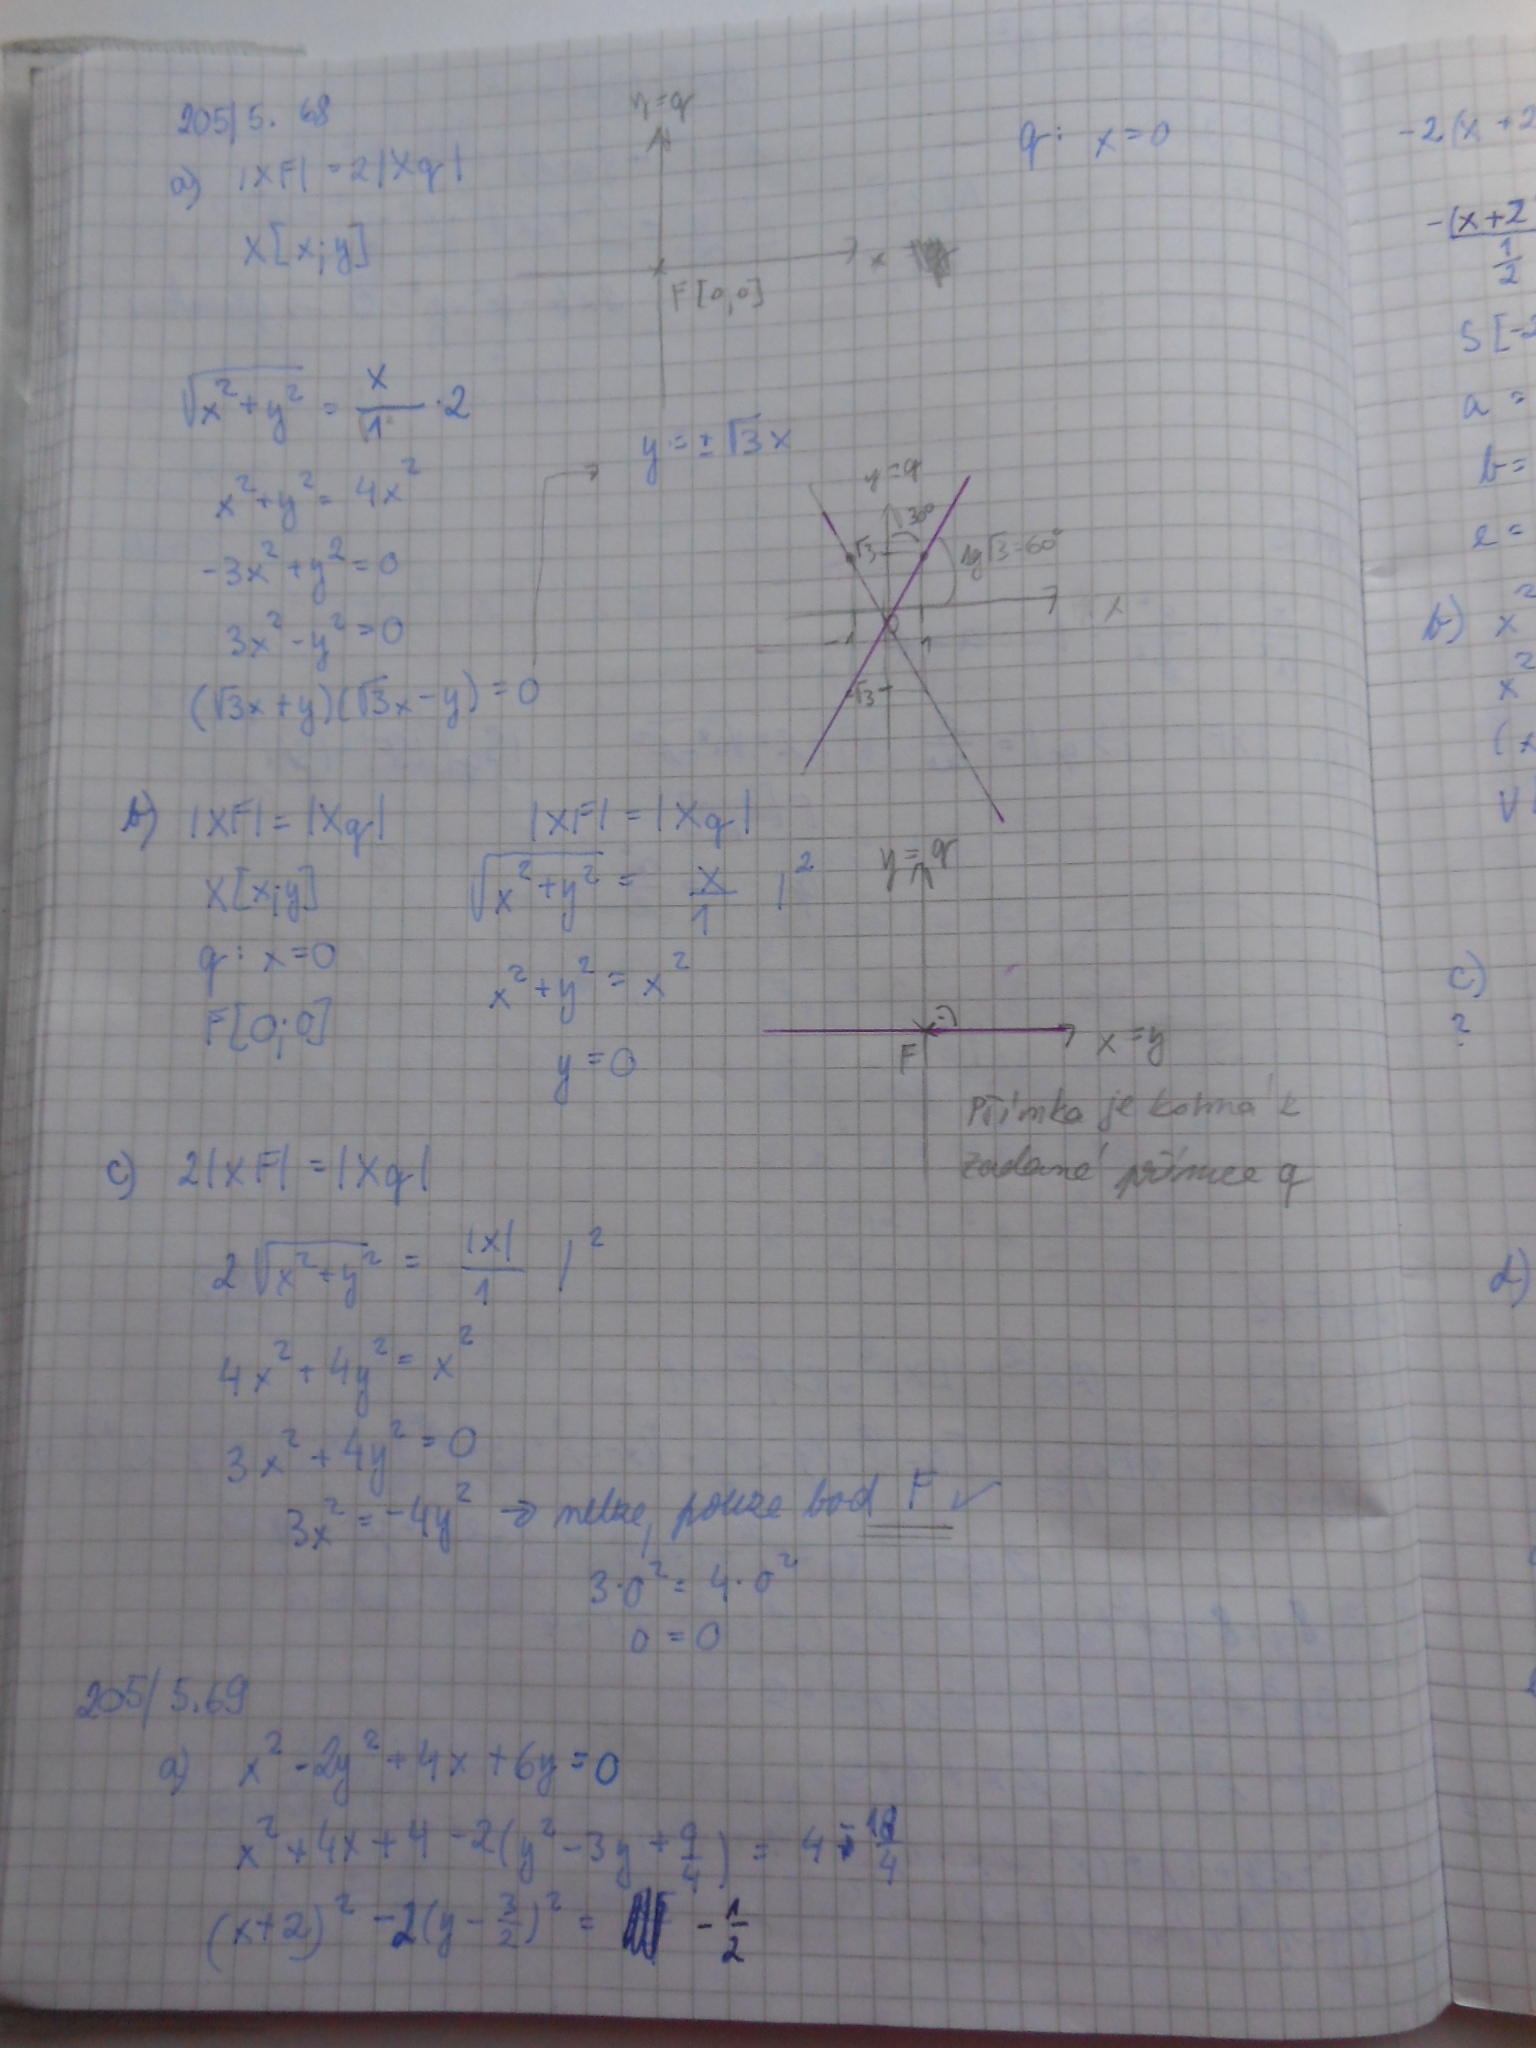 205/5.68
a) |XF| = 2|Xq|
X[x;y]
y=q
x
F[0,0]
q: x=0
√x²+y² = x/√1 · 2
x²+y² = 4x²
-3x²+y²=0
3x²-y²=0
(√3x+y)(√3x-y)=0
y=±√3x
y=q
30°
√3
tg√3=60°
x
0
-1
1
-√3
b) |XF| = |Xq|
X[x;y]
q: x=0
F[0;0]
|XF| = |Xq|
√x²+y² = x/1 |²
x²+y² = x²
y=0
y=q
F
x=y
Přímka je kolmá k
zadané přímce q
c) 2|XF| = |Xq|
2√x²+y² = |x|/1 |²
4x²+4y² = x²
3x²+4y²=0
3x² = -4y² → nelze, pouze bod F ✓
3·0² = 4·0²
0 = 0
205/5.69
a) x²-2y²+4x+6y=0
x²+4x+4-2(y²-3y+9/4) = 4-18/4
(x+2)²-2(y-3/2)² = -1/2
-2(x+2
-(x+2
1/2
S[-2
a =
b =
e =
b) x²
x²
(x
V
c)
?
d)